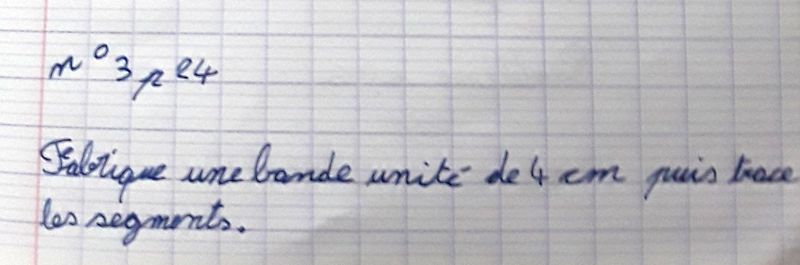 n° 3 p 24
Fabrique une bande unité de 4 cm puis trace
les segments.